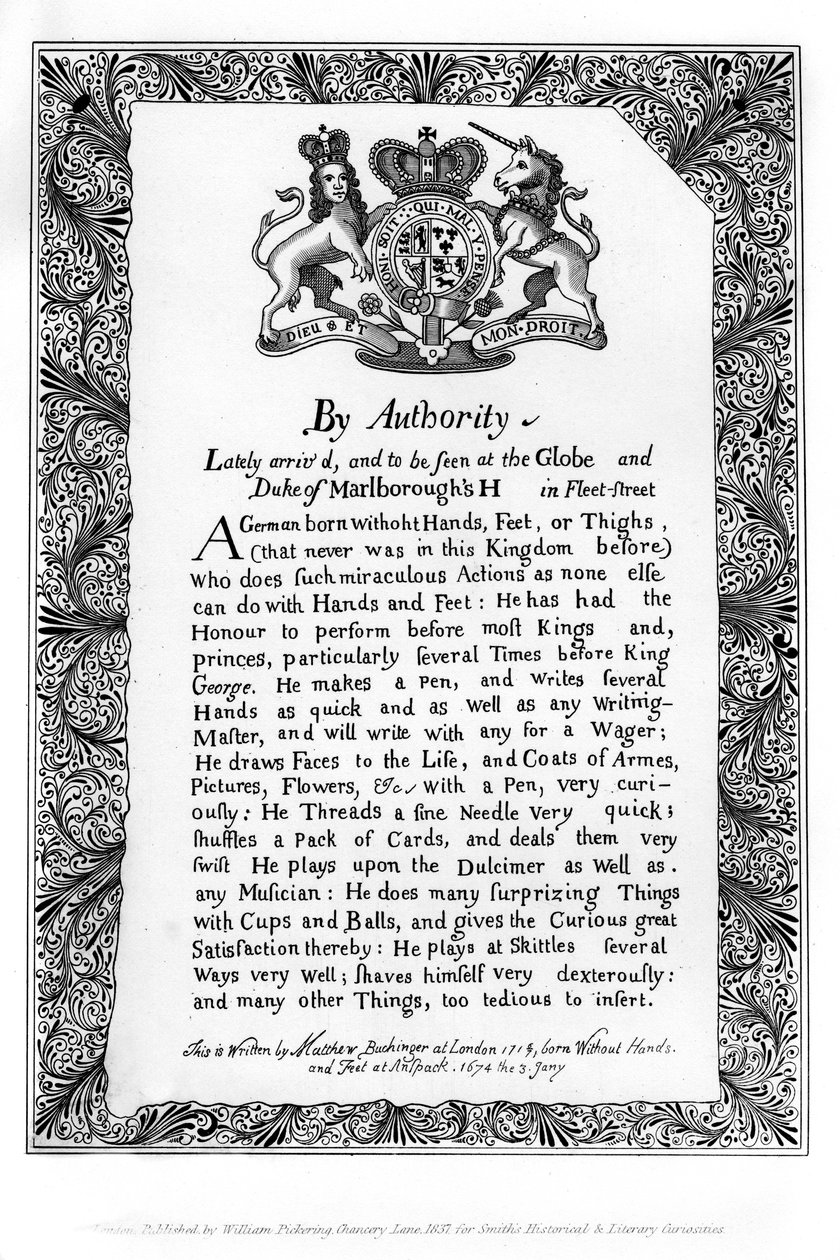 HONI · SOIT · QUI · MAL · Y · PENSE
DIEU & ET
MON · DROIT.
By Authority
Lately arriv'd, and to be ſeen at the Globe and
Duke of Marlborough's H in Fleet-ſtreet
A German born withoht Hands, Feet, or Thighs,
(that never was in this Kingdom before)
Who does ſuch miraculous Actions as none elſe
can do with Hands and Feet: He has had the
Honour to perform before moſt Kings and,
princes, particularly ſeveral Times before King
George. He makes a Pen, and Writes ſeveral
Hands as quick and as Well as any Writing-
Maſter, and will write with any for a Wager;
He draws Faces to the Life, and Coats of Armes,
Pictures, Flowers, &c, with a Pen, very curi-
ouſly: He Threads a fine Needle very quick;
ſhuffles a Pack of Cards, and deals them very
ſwift He plays upon the Dulcimer as Well as.
any Muſician: He does many ſurprizing Things
with Cups and Balls, and gives the Curious great
Satisfaction thereby: He plays at Skittles ſeveral
Ways very Well; ſhaves himſelf very dexterouſly:
and many other Things, too tedious to inſert.
This is Written by Matthew Buchinger at London born Without Hands.
and Feet at Anſpack. 1674 the 3. Jany
London, Published, by William Pickering, Chancery Lane, 1837, for Smith's Historical & Literary Curiosities.